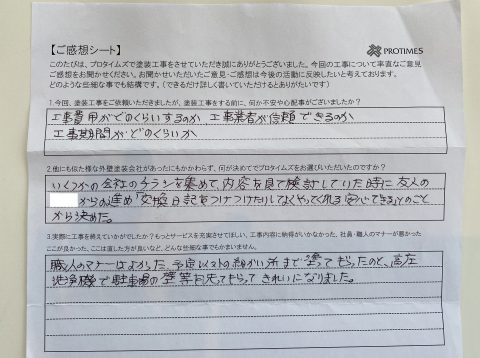 【ご感想シート】
PROTIMES
このたびは、プロタイムズで塗装工事をさせていただき誠にありがとうございました。今回の工事について率直なご意見
ご感想をお聞かせください。お聞かせいただいたご意見・ご感想は今後の活動に反映したいと考えております。
どのような些細な事でも結構です。（できるだけ詳しく書いていただけるとありがたいです）
1.今回、塗装工事をご依頼いただきましたが、塗装工事をする前に、何か不安や心配事がございましたか？
工事費用がどのくらいするのか 工事業者が信頼できるのか
工事期間がどのくらいか
2.他にも似た様な外壁塗装会社があったにもかかわらず、何が決めてでプロタイムズをお選びいただいたのですか？
いくつかの会社のチラシを集めて、内容を見て検討していた時に友人の
からの進め「交換日記をつけつけたりしてよくやってくれる安心できる」とのこと
から決めた。
3.実際に工事を終えていかがでしたか？もっとサービスを充実させてほしい、工事内容に納得がいかなかった、社員・職人のマナーが悪かった
ここが良かった、ここは直した方が良いなど、どんな些細な事でもかまいません。
職人のマナーはよかった。予定以上の細かい所まで塗ってもらったのと、高圧
洗浄機で駐車場の壁等も洗ってもらってきれいになりました。